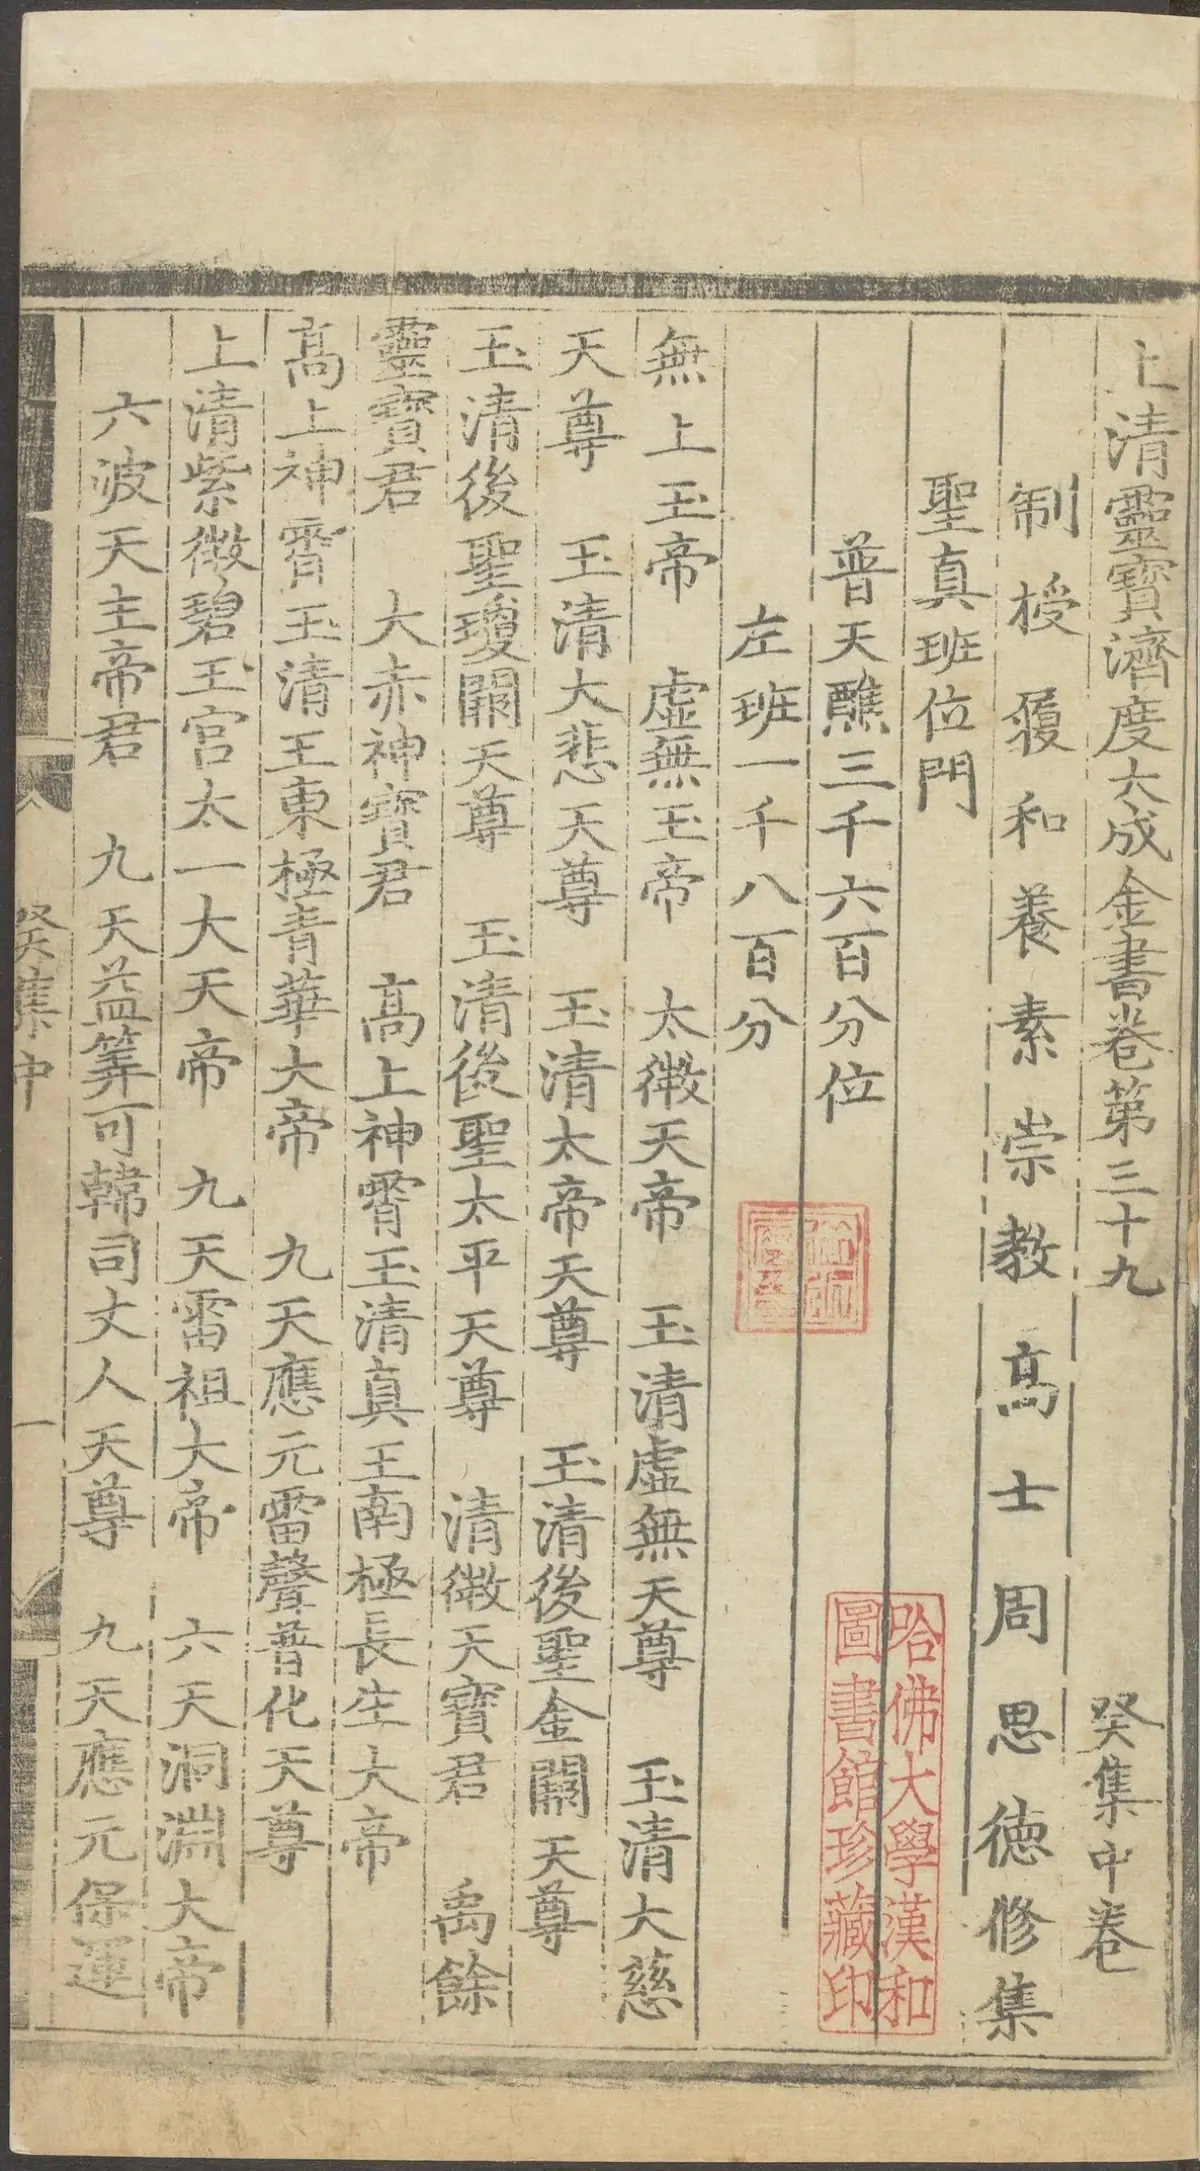 上清靈寶濟度大成金書卷第三十九 癸集中卷
制授履和養素崇教高士周思德修集
聖真班位門
普天醮三千六百分位
左班一千八百分
無上玉帝 虛無玉帝 太微天帝 玉清虛無天尊 玉清大慈
天尊 玉清大悲天尊 玉清太帝天尊 玉清後聖金闕天尊
玉清後聖瓊闕天尊 玉清後聖太平天尊 清微天寶君 禹餘
靈寶君 大赤神寶君 高上神霄玉清真王南極長生大帝
高上神霄玉清王東極青華大帝 九天應元雷聲普化天尊
上清紫微碧玉宮太一大天帝 九天雷祖大帝 六天洞淵大帝
六波天主帝君 九天益筭可韓司丈人天尊 九天應元保運
癸集中 一
哈佛大學漢和
圖書館珍藏印